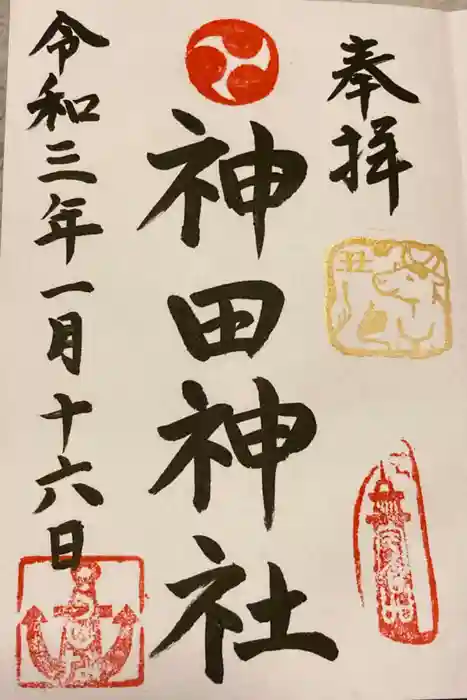 奉拝
丑
神田神社
令和三年一月十六日